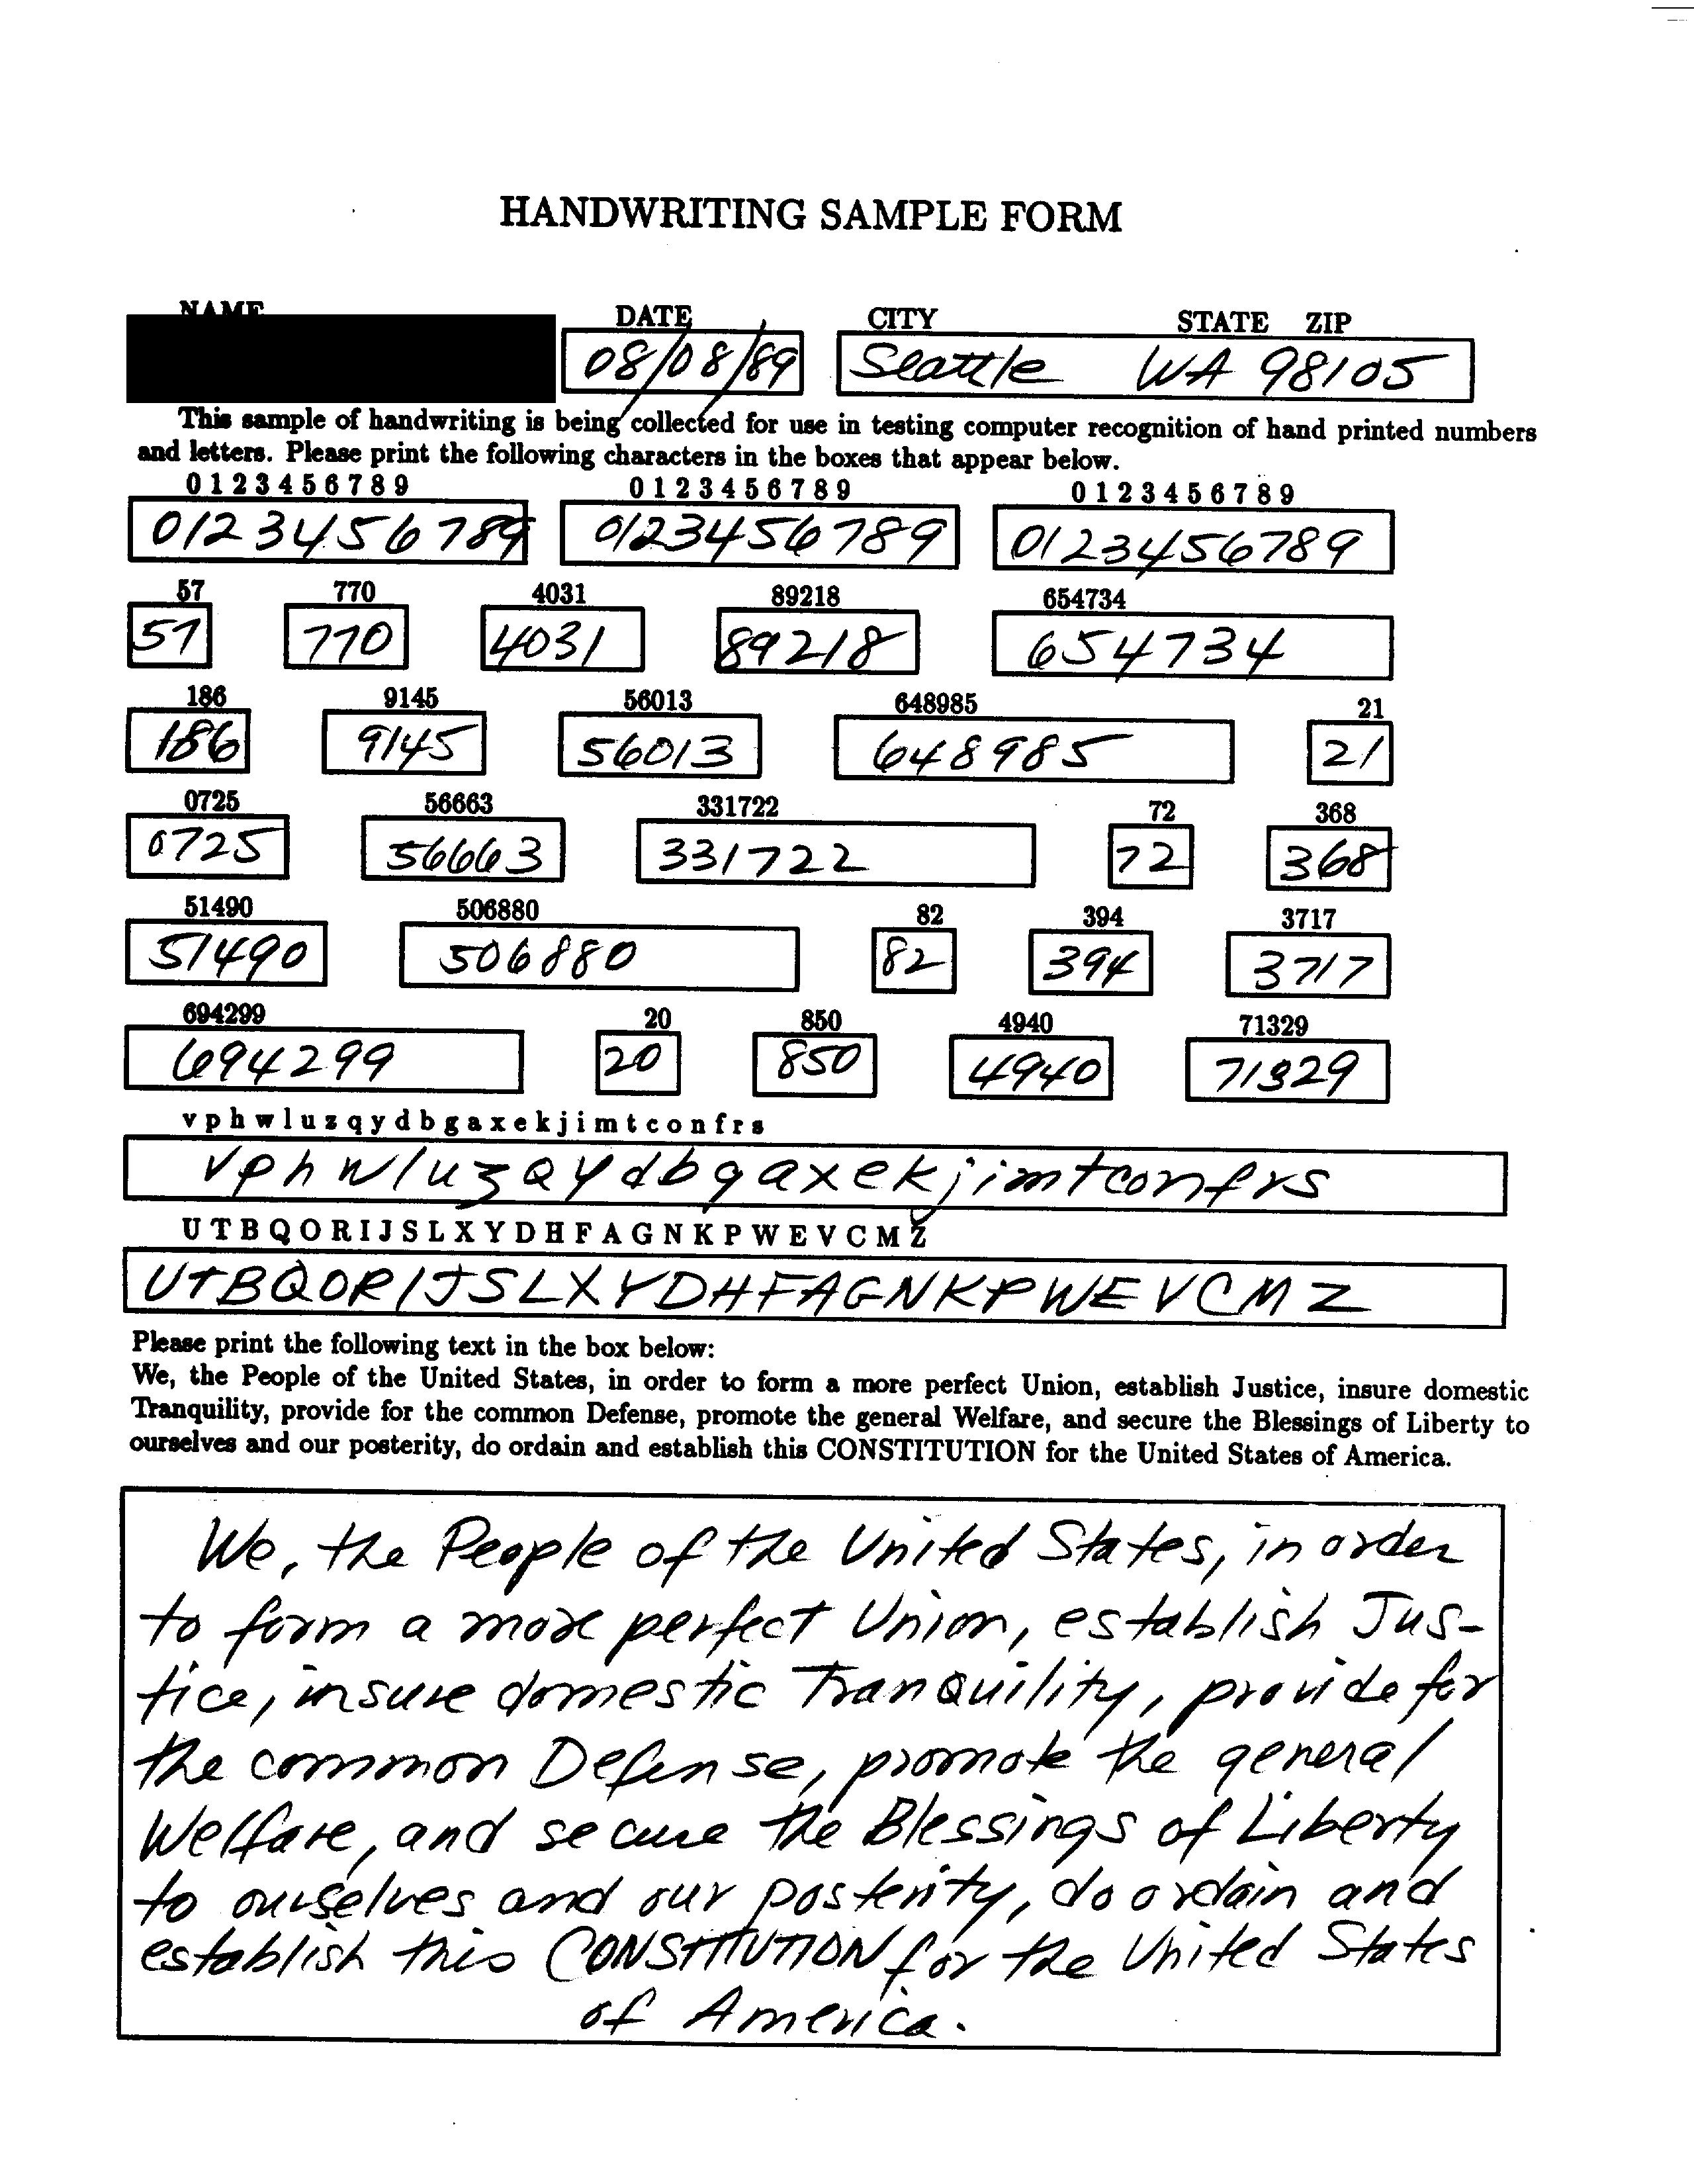 HANDWRITING SAMPLE FORM
NAME DATE CITY STATE ZIP
08/08/89 Seattle WA 98105
This sample of handwriting is being collected for use in testing computer recognition of hand printed numbers
and letters. Please print the following characters in the boxes that appear below.
0 1 2 3 4 5 6 7 8 9 0 1 2 3 4 5 6 7 8 9 0 1 2 3 4 5 6 7 8 9
0123456789 0123456789 0123456789
57 770 4031 89218 654734
57 770 4031 89218 654734
186 9145 56013 648985 21
186 9145 56013 648985 21
0725 56663 331722 72 368
0725 56663 331722 72 368
51490 506880 82 394 3717
51490 506880 82 394 3717
694299 20 850 4940 71329
694299 20 850 4940 71329
v p h w l u z q y d b g a x e k j i m t c o n f r s
v p h w l u z q y d b g a x e k j i m t c o n f r s
U T B Q O R I J S L X Y D H F A G N K P W E V C M Z
U T B Q O R I J S L X Y D H F A G N K P W E V C M Z
Please print the following text in the box below:
We, the People of the United States, in order to form a more perfect Union, establish Justice, insure domestic
Tranquility, provide for the common Defense, promote the general Welfare, and secure the Blessings of Liberty to
ourselves and our posterity, do ordain and establish this CONSTITUTION for the United States of America.
We, the People of the United States, in order
to form a more perfect Union, establish Jus-
tice, insure domestic Tranquility, provide for
the common Defense, promote the general
Welfare, and secure the Blessings of Liberty
to ourselves and our posterity, do ordain and
establish this CONSTITUTION for the United States
of America.